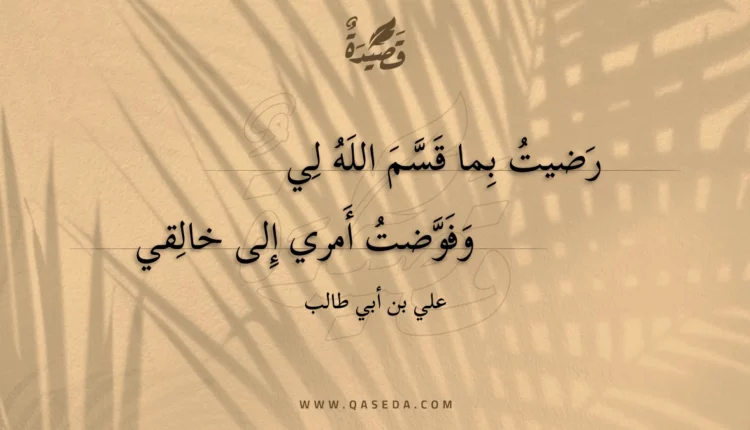 قَصِيدَةٌ
رَضيتُ بِما قَسَّمَ اللَهُ لِي
وَفَوَّضتُ أَمري إِلى خالِقي
علي بن أبي طالب
WWW.QASEDA.COM